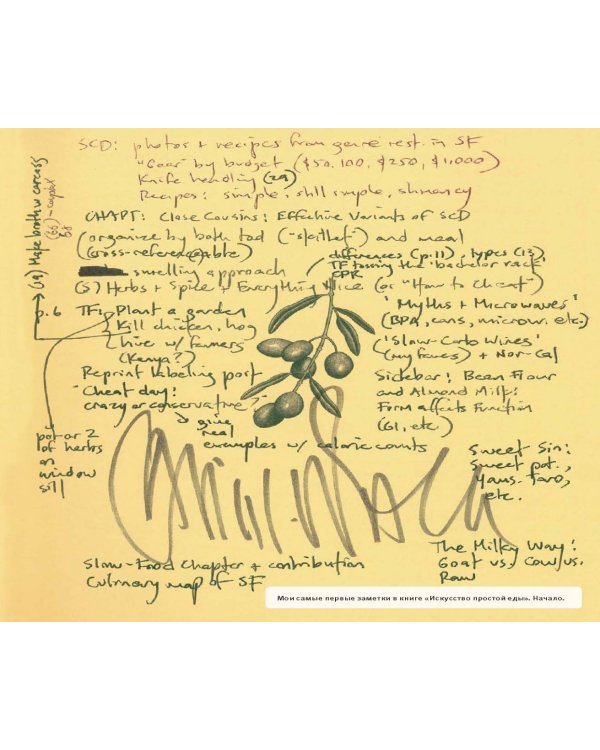 SCD: photos + recipes from genre rest. in SF
"Gear" by budget ($50, 100, $250, $1,000)
Knife handling (29)
Recipes: simple, still simple, shmancy
CHAPT: Close Cousins: Effective Variants of SCD
(organize by both tool (-skillet-) and meal
(cross-referenceable)
differences (p.11), types (13)
smelling approach
TF tossing the 'bachelor rack'
CPR
(5) Herbs + Spice + Everything Nice (or "How to Cheat")
(19) Make broth w/ carcass
58
p.6
TF: Plant a garden
Kill chicken, hog
Live w/ farmers
(Kenya?)
Reprint labeling port
"Cheat day:
crazy or conservative?"
↳ give
real
examples w/ caloric counts
'Myths + Microwaves'
(BPA, cans, microw. etc.)
'Slow-Carb Wines'
(my faves) + Nor-Cal
Sidebar: Bean Flour
and Almond Milk:
Form affects Function
(GI, etc)
pot or 2
of herbs
on
window
sill
Sweet Sin:
Sweet pot.,
Yams, taro,
etc.
Slow-Food Chapter + contribution
Culinary map of SF
The Milky Way:
Goat vs. Cow vs.
Raw
Мои самые первые заметки в книге «Искусство простой еды». Начало.